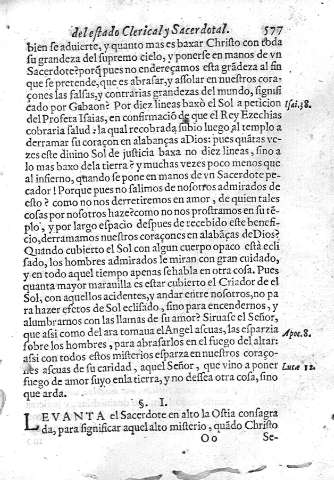 del estado Clerical y Sacerdotal. 577
bien se aduierte, y quanto mas es baxar Christo con toda
su grandeza del supremo cielo, y ponerse en manos de vn
Sacerdote? porq̃ pues no endereçamos esta grãdeza al fin
que se pretende, que es abrasar, y assolar en nuestros cora-
çones las falsas, y contrarias grandezas del mundo, signifi
cado por Gabaon? Por diez lineas baxò el Sol a peticion
del Profeta Isaias, en confirmaciõ de que el Rey Ezechias Isai. 38.
cobraria salud: la qual recobrada subio luego al templo a
derramar su coraçon en alabanças a Dios: pues quãtas ve-
zes este diuino Sol de justicia baxa no diez lineas, sino a
lo mas baxo dela tierra? y muchas vezes poco menos que
al infierno, quando se pone en manos de vn Sacerdote pe-
cador! Porque pues no salimos de nosotros admirados de
esto? como no nos derretiremos en amor, de quien tales
cosas por nosotros haze? como no nos prostramos en su tẽ-
plo, y por largo espacio despues de recebido este benefi-
cio, derramamos nuestros coraçones en alabãças de Dios?
Quando cubierto el Sol con algun cuerpo opaco està ecli
sado, los hombres admirados le miran con gran cuidado,
y en todo aquel tiempo apenas se habla en otra cosa. Pues
quanta mayor marauilla es estar cubierto el Criador de el
Sol, con aquellos accidentes, y andar entre nosotros, no pa
ra hazer efetos de Sol eclisado, sino para encendernos, y
alumbrarnos con las llamas de su amor? Siruase el Señor,
que assi como del ara tomaua el Angel ascuas, las esparzia Apoc. 8.
sobre los hombres, para abrasarlos en el fuego del altar:
assi con todos estos misterios esparza en nuestros coraço-
nes ascuas de su caridad, aquel Señor, que vino a poner Lucæ 12.
fuego de amor suyo en la tierra, y no dessea otra cosa, sino
que arda.
§. I.
LEVANTA el Sacerdote en alto la Ostia consagra
da, para significar aquel alto misterio, quãdo Christo
Oo Se-